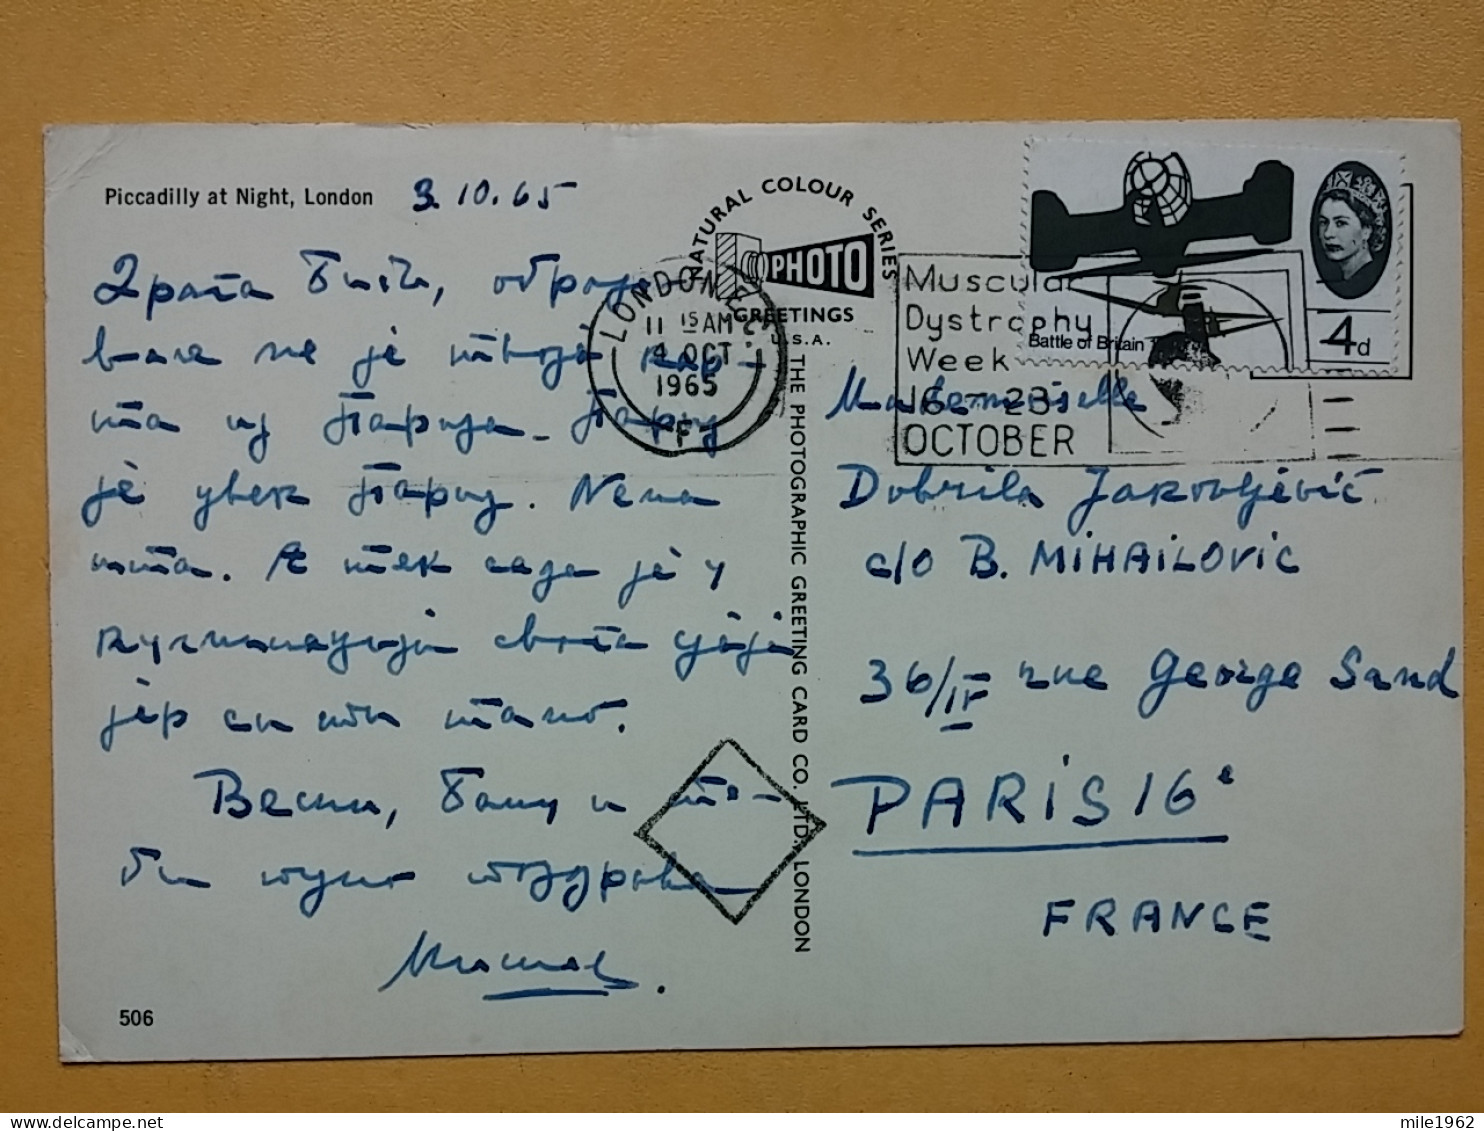 Piccadilly at Night, London 3.10.65
Драга Бибо, обрадо-
вала ме је твоја кар-
та из Париза. Париз
је увек Париз. Нема
шта. А тек сада је у
јер си ти тамо.
Весни, Бати и те-
би пуно поздрава
506
NATURAL COLOUR SERIES
PHOTO
GREETINGS
U.S.A.
THE PHOTOGRAPHIC GREETING CARD CO. LTD. LONDON
LONDON
11 15 AM
4 OCT
1965
F
Muscular
Dystrophy
Week
16 - 23
OCTOBER
Battle of Britain
4d
Mademoiselle
Dobrila Jakovljević
c/o B. MIHAILOVIC
36/IV rue George Sand
PARIS 16e
FRANCE
mile1962